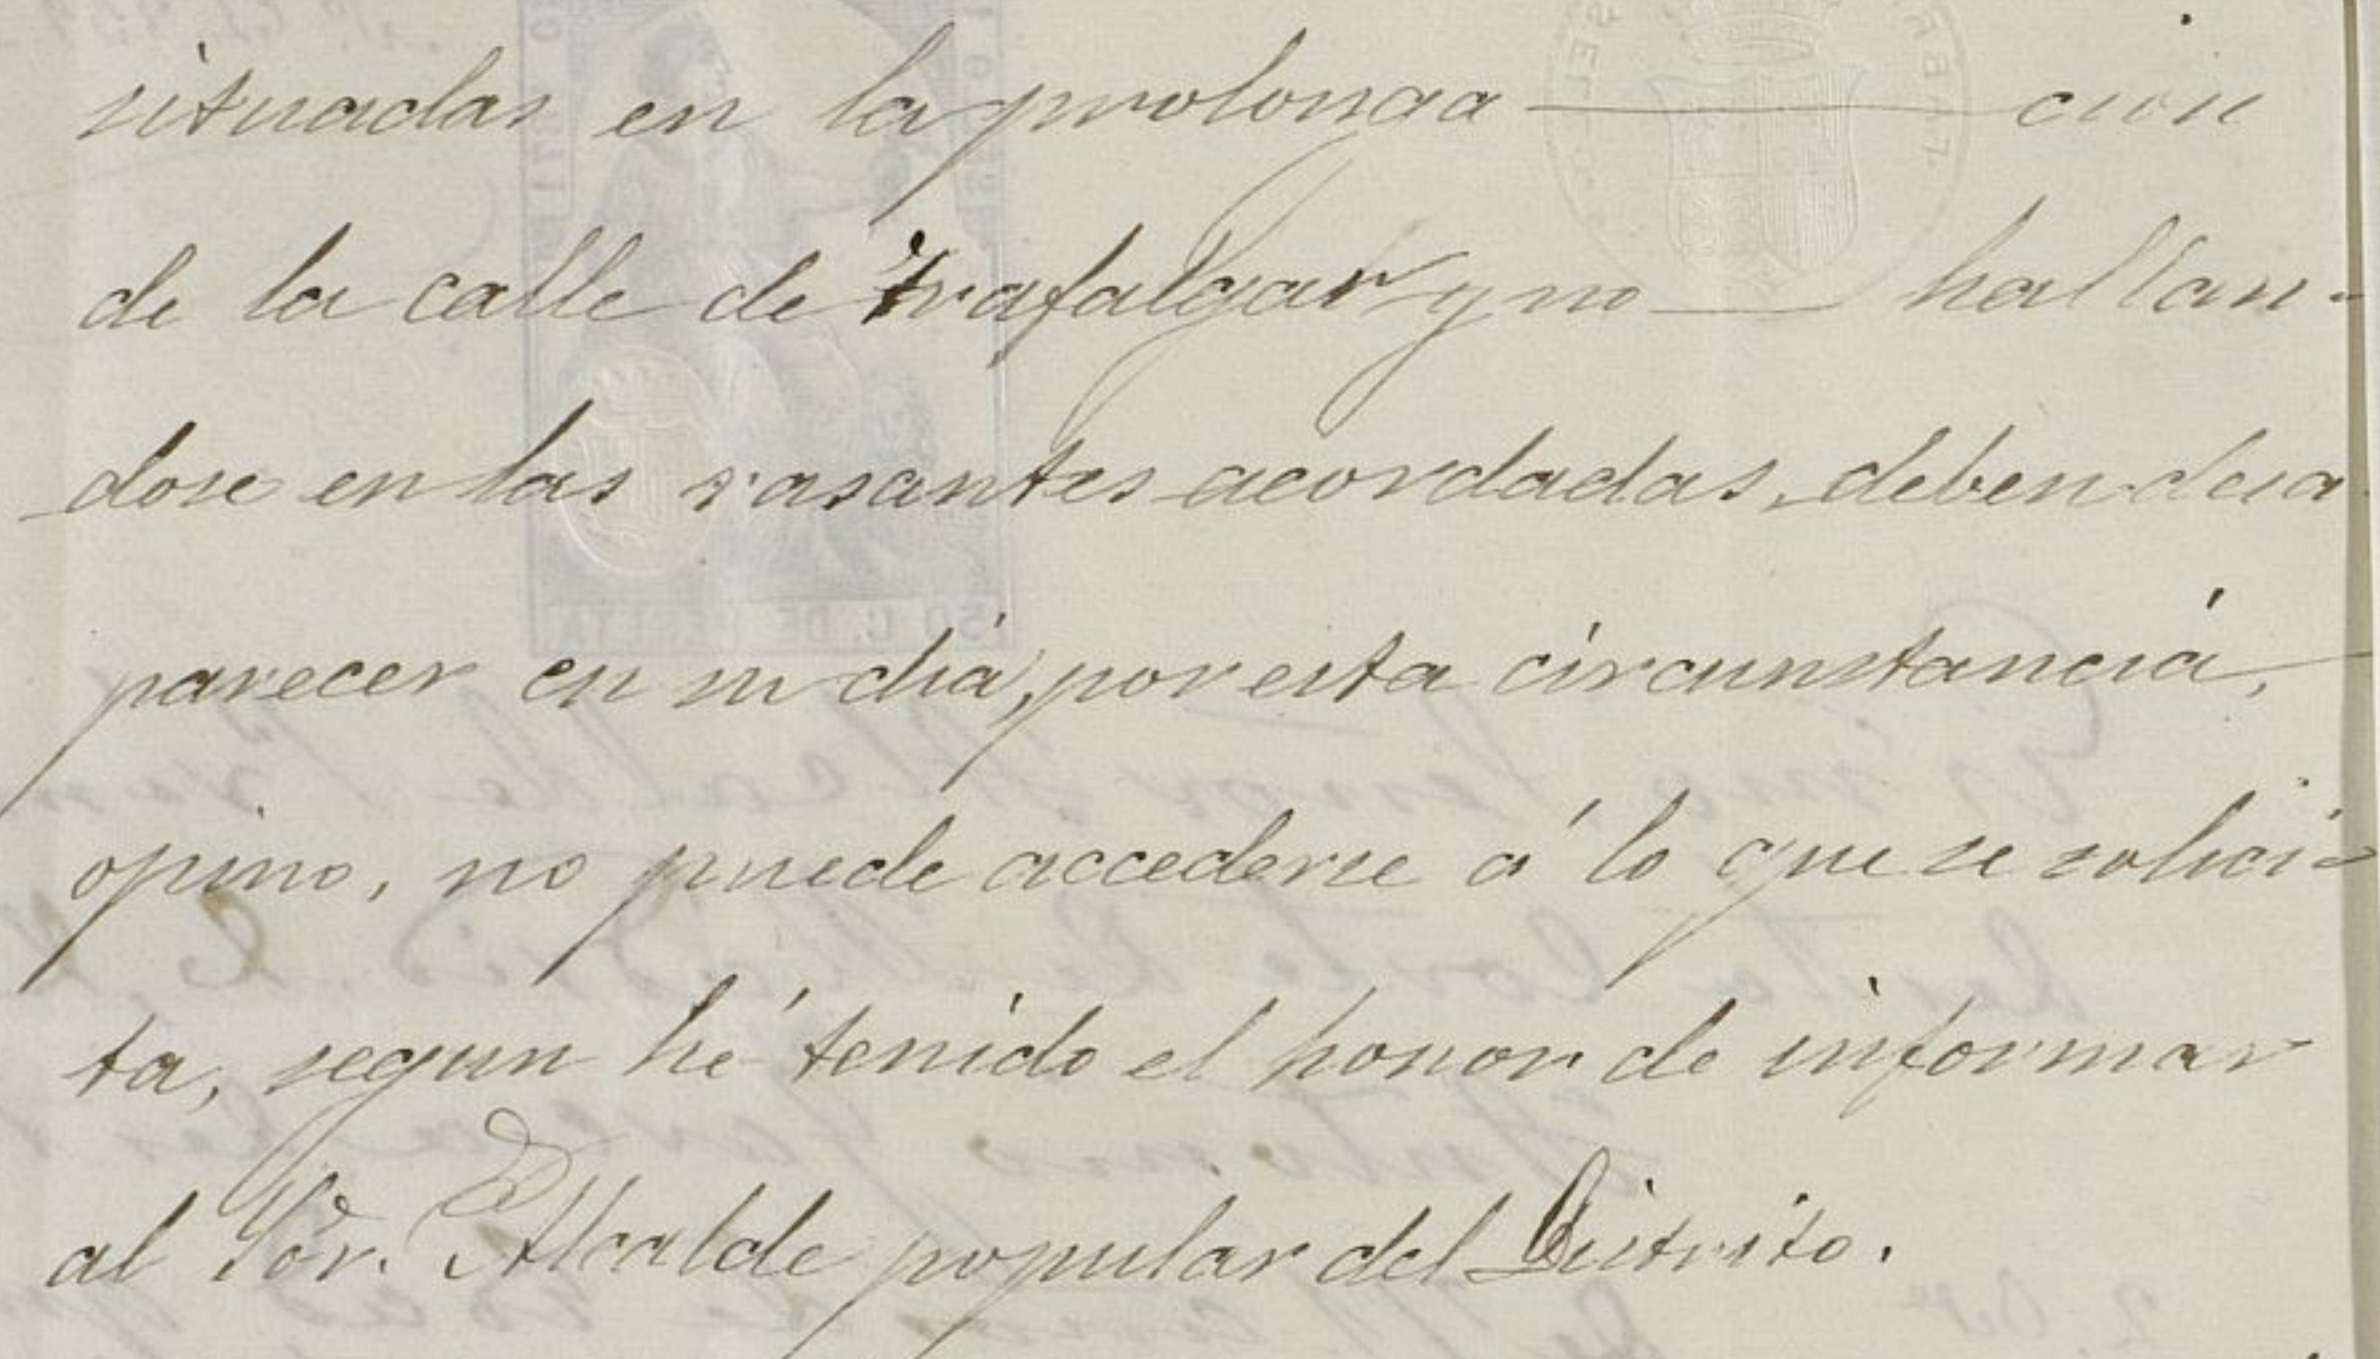 situadas en la prolonga — cion
de la calle de trafalgar y no — hallan-
dose en las rasantes acordadas, deben desa
parecer en su dia, por esta circunstancia,
opino, no puede accederse á lo que se solici-
ta, segun hé tenido el honor de informar
al Sor. Alcalde popular del Distrito.